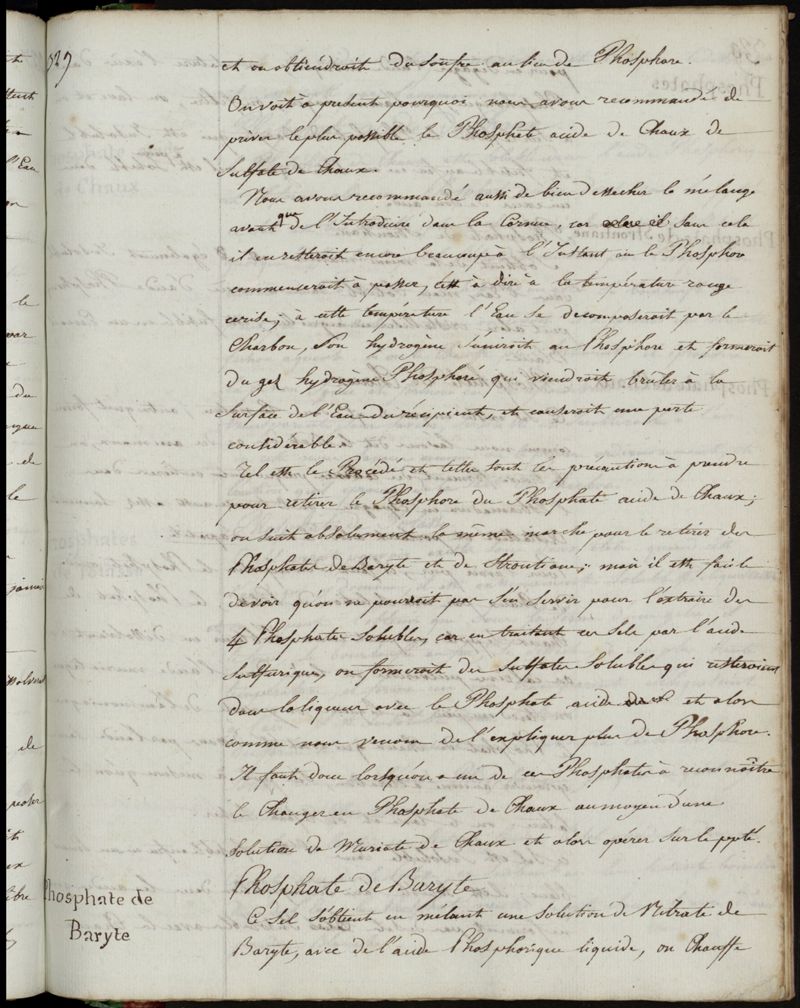 329
et on obtiendroit du Soufre au lieu de Phosphore.
On voit a present pourquoi nous avons recommandé de
priver le plus possible le Phosphate acide de Chaux de
Sulfate de Chaux.
Nous avons recommandé aussi de bien dessecher le mélange
avant que de l'Introduire dans la Cornue, car Sans cela
il en resteroit encore beaucoup à l'Instant ou le Phosphore
commenceroit à passer, C'est à dire à la température rouge
cerise; à cette température l'Eau Se decomposeroit par le
Charbon, Son hydrogène S'uniroit au Phosphore et formeroit
Du gaz hydrogène Phosphoré qui viendroit brûler à la
Surface de l'Eau du récipient, et causeroit une perte
considérable.
Tel est le Procédé et telles sont les précautions à prendre
pour retirer le Phosphore du Phosphate acide de Chaux;
on suit absolument la même marche pour le retirer des
Phosphates de Baryte et de Strontiane; mais il est facile
de voir qu'on ne pourroit pas S'en Servir pour l'extraire des
4 Phosphates Solubles, car en traitant ces Sels par l'acide
Sulfurique, on formeroit des Sulfates Solubles qui resteroient
dans la liqueur avec le Phosphate acide et alors
comme nous venons de l'expliquer plus de Phosphore.
Il faut donc lorsqu'on a un de ces Phosphates à reconnoître
le Changer en Phosphate de Chaux au moyen d'une
Solution de Muriate de Chaux et alors opérer Sur le ppté.
Phosphate de Baryte
Phosphate de
Baryte
Ce Sel S'obtient en mélant une Solution de Nitrate de
Baryte, avec de l'acide Phosphorique liquide, on Chauffe